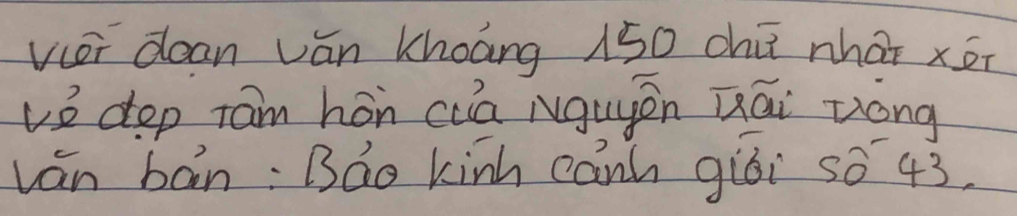 viết đoạn văn khoảng 150 chữ nhận xét
vẻ đẹp tâm hồn của Nguyễn Trãi trong
văn bản : Bảo kính cảnh giới số 43.